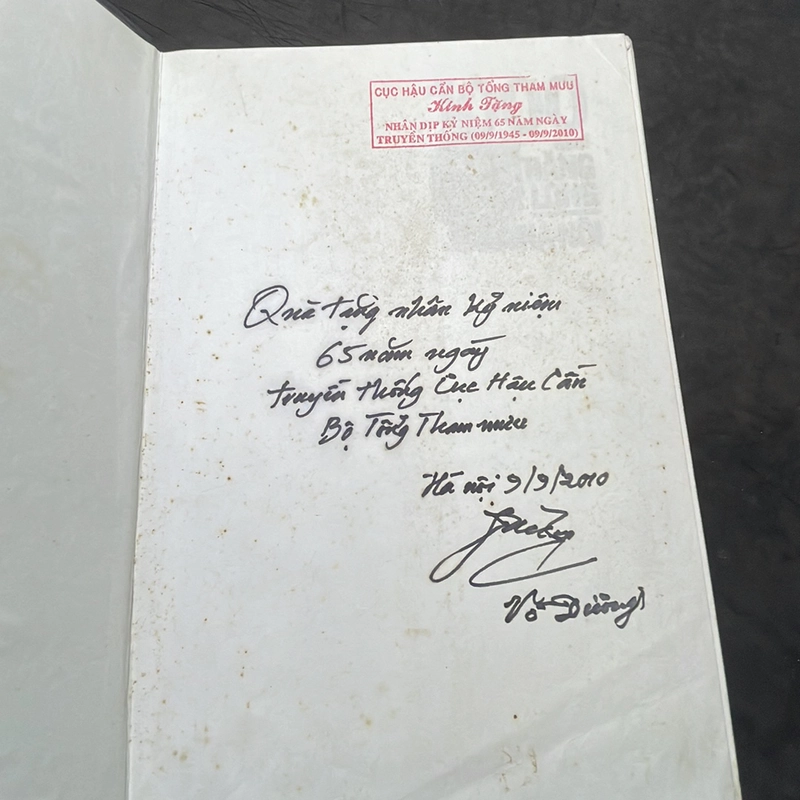 CỤC HẬU CẦN BỘ TỔNG THAM MƯU
Kính Tặng
NHÂN DỊP KỶ NIỆM 65 NĂM NGÀY
TRUYỀN THỐNG (09/9/1945 - 09/9/2010)
Quà tặng nhân kỷ niệm
65 năm ngày
truyền thống Cục Hậu Cần
Bộ Tổng Tham mưu
Hà nội 9/9/2010
Võ